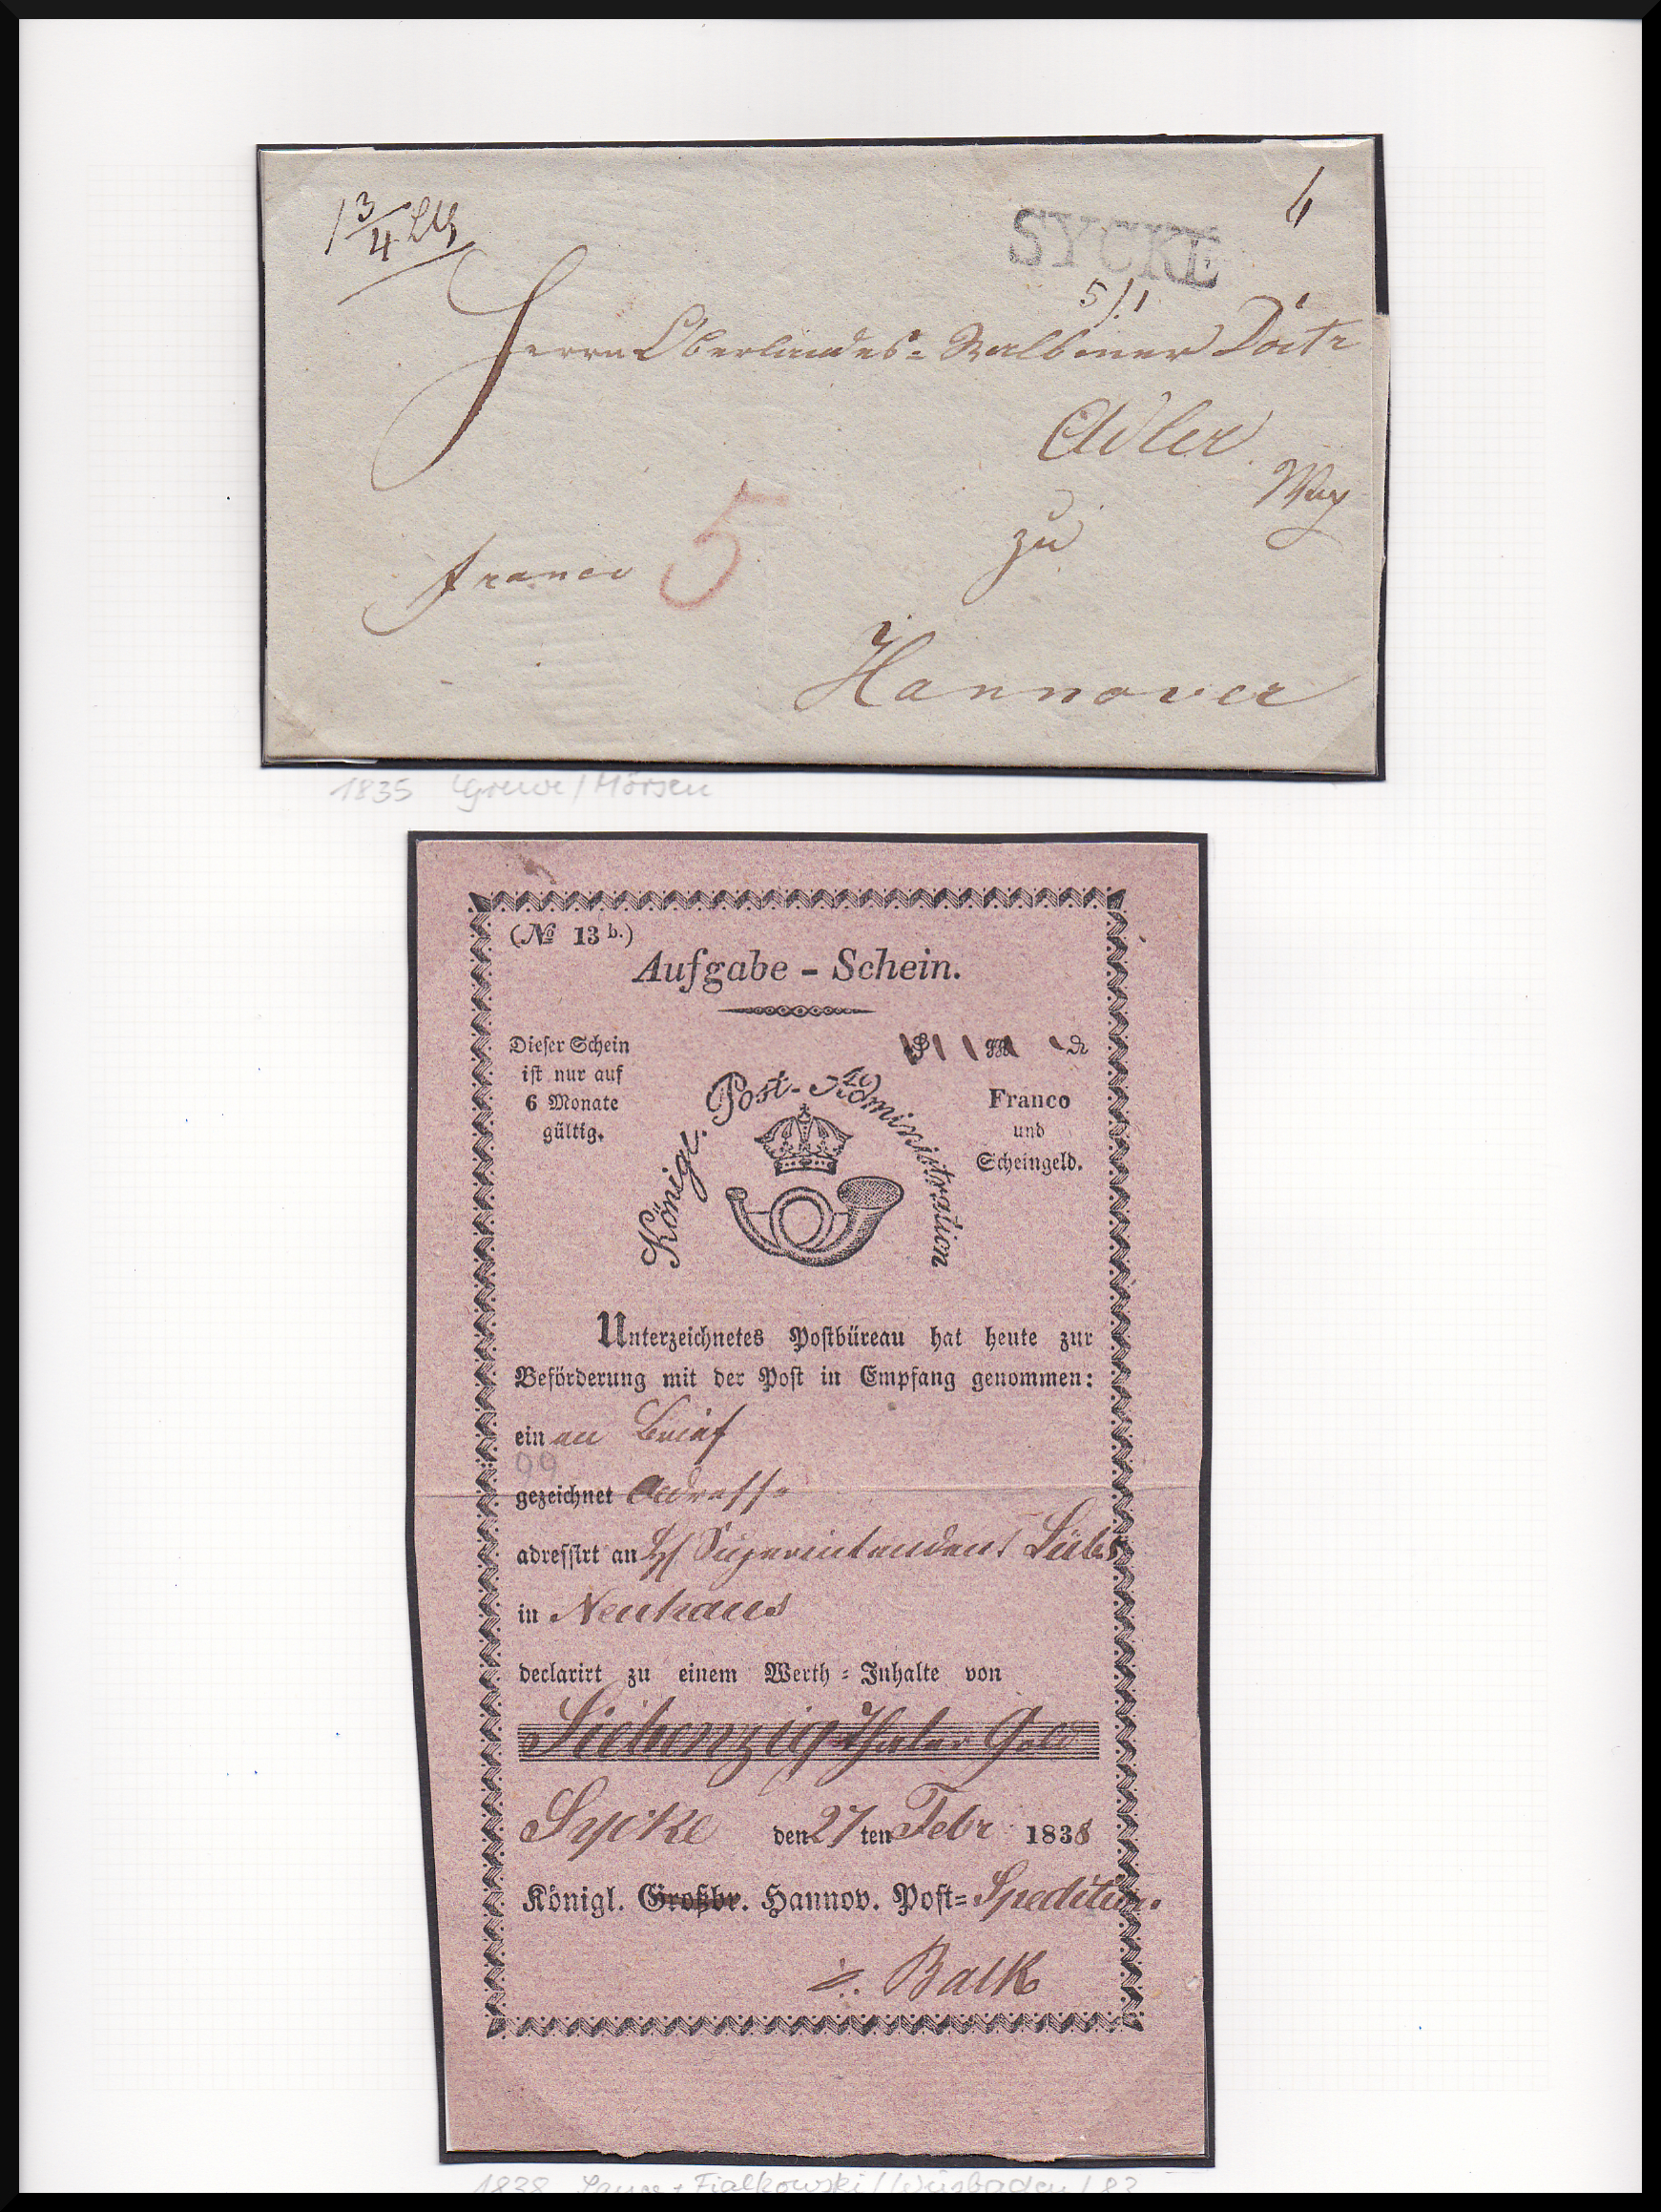 1 3/4 Lth
6
SYCKE
5/1
Herrn Oberlandes-Rabbiner Doctr
Adler
zu
franco 5
Hannover
1835 Grewe/Mörsen
(No 13 b.)
Aufgabe - Schein.
Dieser Schein
ist nur auf
6 Monate
gültig.
Königl. Post-Administration
Franco
und
Scheingeld.
Unterzeichnetes Postbüreau hat heute zur
Beförderung mit der Post in Empfang genommen:
ein en Brief
99
gezeichnet Adresse
adressirt an H Superintendent
in Neuhaus
declarirt zu einem Werth-Inhalte von
Siebenzig Thaler Gold
Sycke den 27 ten Febr 1838
Königl. Großbr. Hannov. Post-Spedition.
Balk
1838 Fialkowski/Wiesbaden/83